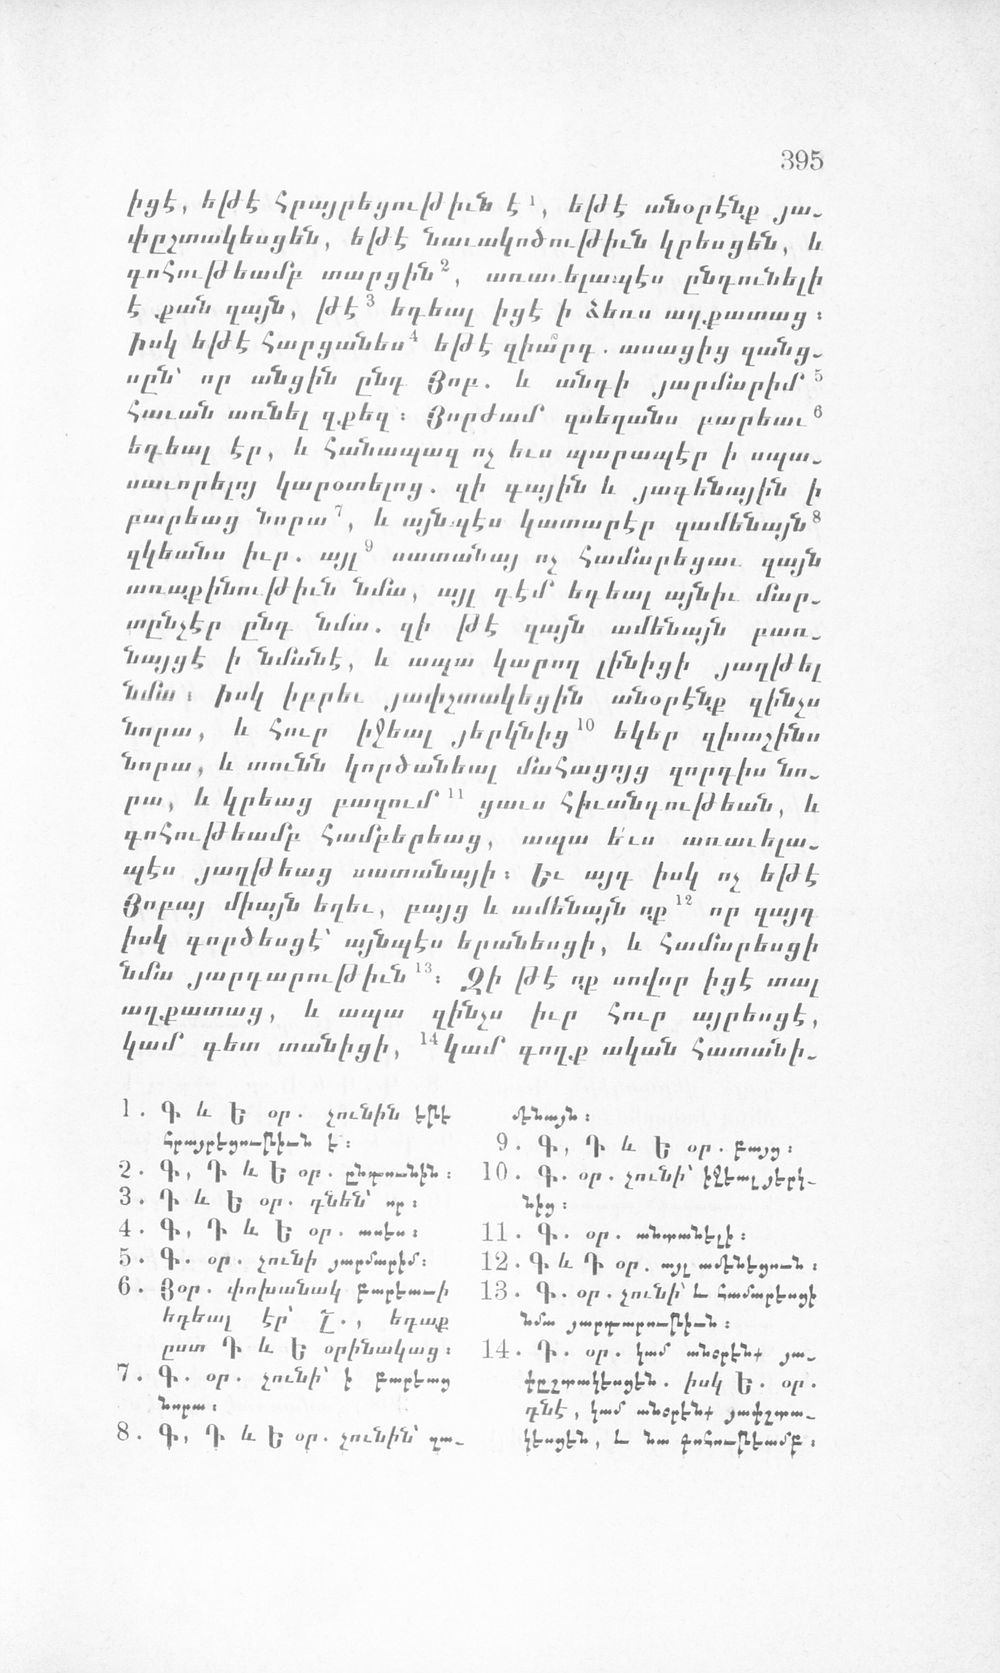 395
իցէ, եթէ հրայրեցութիւն է 1, եթէ անօրէնք յա-
փըշտակեսցեն, եթէ նաւակոծութիւն կրեսցեն, և
գոհութեամբ տարցին 2, առաւելապէս ընդունելի
է քան զայն, թէ 3 եդեալ իցէ ի ձեռս աղքատաց:
իսկ եթէ հարցանես 4 եթէ զիա՞րդ. ասացից զանց-
սըն՝ որ անցին ընդ Յոբ. և անդի յարմարիմ 5
հաւան առնել զքեզ: Յորժամ զսեղանս բարեաւ 6
եդեալ էր, և հանապազ ոչ եւս պարապէր ի սպա-
սաւորելոյ կարօտելոց. զի գային և յագենային ի
բարեաց նորա 7, և այնպէս կատարէր զամենայն 8
զկեանս իւր. այլ 9 սատանայ ոչ համարեցաւ զայն
առաքինութիւն նմա, այլ դէմ եդեալ այնիւ մար-
տընչէր ընդ նմա. զի թէ զայն ամենայն բառ-
նայցէ ի նմանէ, և ապա կարող լինիցի յաղթել
նմա: իսկ իբրեւ յափշտակեցին անօրէնք զինչս
նորա, և հուր իջեալ յերկնից 10 եկեր զխաշինս
նորա, և տունն կործանեալ մահացոյց զորդիս նո-
րա, և կրեաց բազում 11 ցաւս հիւանդութեան, և
գոհութեամբ համբերեաց, ապա ե՛ւս առաւելա-
պէս յաղթեաց սատանայի: Եւ այդ իսկ ոչ եթէ
Յոբայ միայն եղեւ, բայց և ամենայն ոք 12 որ զայդ
իսկ գործեսցէ՝ այնպէս երանեսցի, և համարեսցի
նմա յարդարութիւն 13: Զի թէ ոք սովոր իցէ տալ
աղքատաց, և ապա զինչս իւր հուր այրեսցէ,
կամ գետ տանիցի, 14 կամ գողք ական հատանի-
1. Գ և Ե օր. չունին եթե
հրայրեցութիւն է:
2. Գ, Դ և Ե օր. ընդունին:
3. Դ և Ե օր. դնեն՝ որ:
4. Գ, Դ և Ե օր. ասես:
5. Գ. օր. չունի յարմարիմ:
6. Յօր. փոխանակ բարեաւի
եդեալ էր՝ Ը., եդաք
ըստ Դ և Ե օրինակաց:
7. Գ. օր. չունի՝ ի բարեաց
նորա:
8. Գ, Դ և Ե օր. չունին՝ զա-
մենայն:
9. Գ, Դ և Ե օր. բայց:
10. Գ. օր. չունի՝ իջեալ յերկ-
նից:
11. Գ. օր. անտանելի:
12. Գ և Դ օր. այլ ամենեցուն:
13. Գ. օր. չունի՝ և համարեսցի
նմա յարդարութիւն:
14. Դ. օր. կամ անօրէնք յա-
փըշտակեսցեն. իսկ Ե. օր.
դնէ, կամ անօրէնք յափշտա-
կեսցեն, և նա գոհութեամբ: